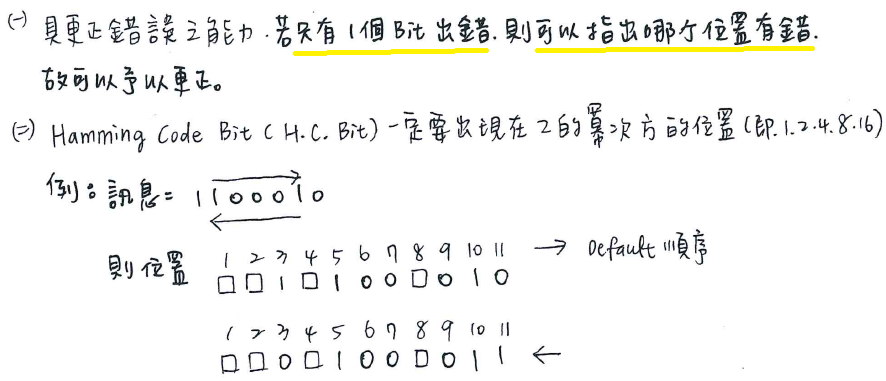 (一) 具更正錯誤之能力.若只有1個Bit出錯.則可以指出哪个位置有錯.
故可以予以更正。
(二) Hamming Code Bit (H.C. Bit) 一定要出現在2的冪次方的位置(即.1.2.4.8.16)
例:訊息= 1100010
則位置 1 2 3 4 5 6 7 8 9 10 11 → Default順序
□ □ 1 □ 1 0 0 □ 0 1 0
1 2 3 4 5 6 7 8 9 10 11
□ □ 0 □ 1 0 0 □ 0 1 1 ←